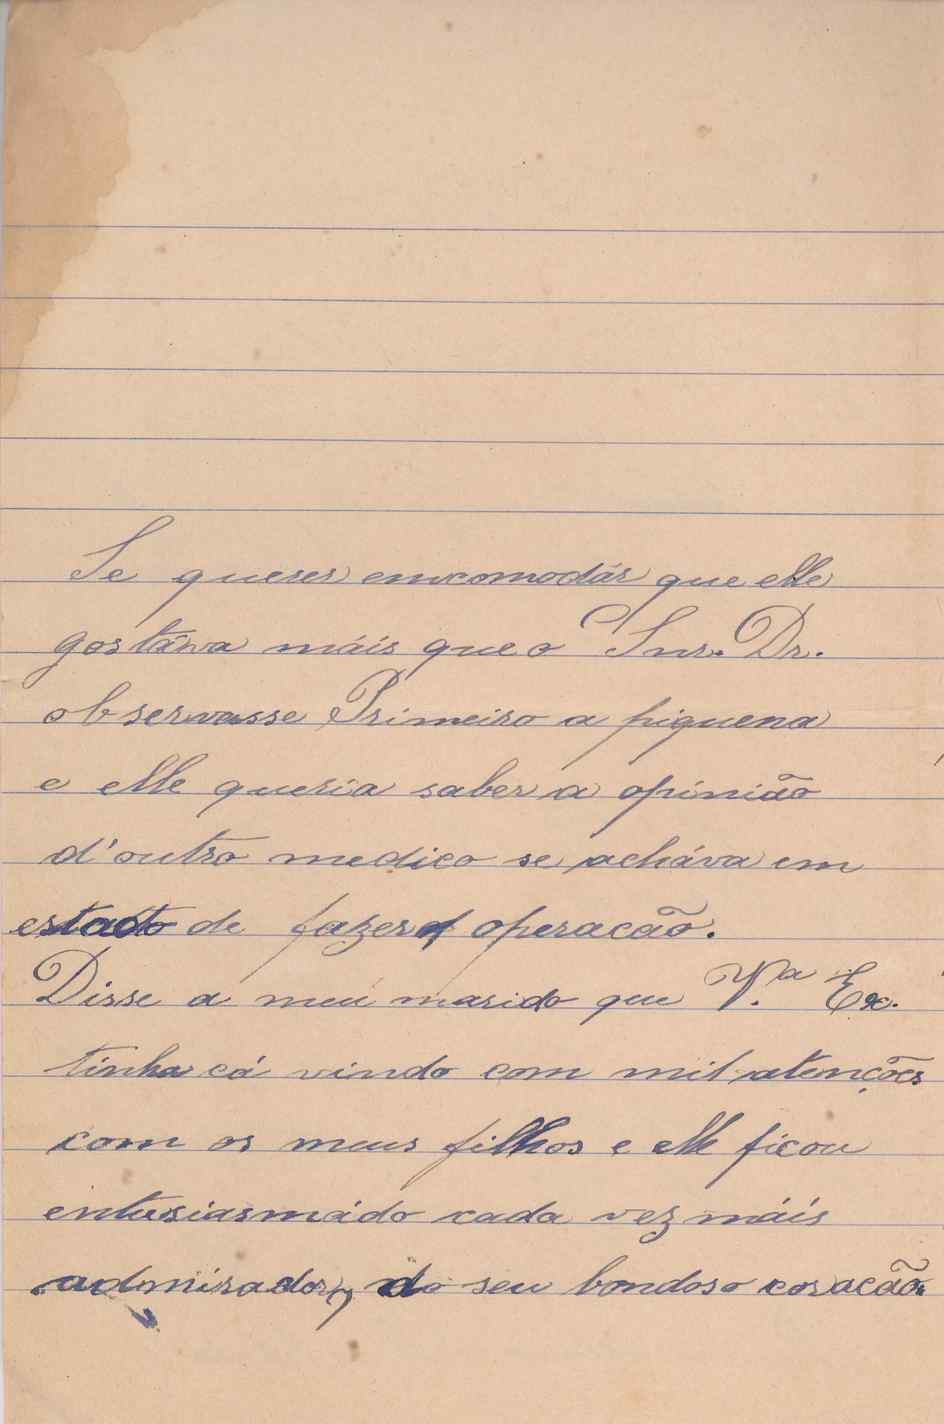 Se queres emcomodár que elle
gostáva máis que o Snr. Dr.
observasse Primeiro a piquena
e elle queria saber a opinião
d'outro medico se acháva em
estado de fazer a operacão.
Disse a meu marido que V.ª Ex.
tinha cá vindo com mil atenções
com os meus filhos e elle ficou
entusiasmádo cada vez máis
admirador, do seu bondoso coracão.